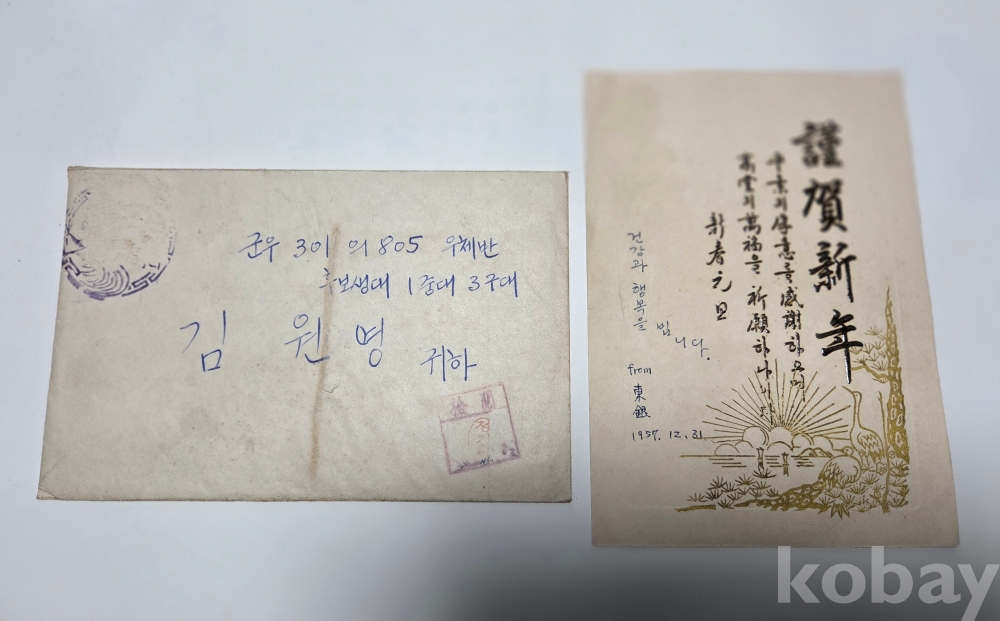 군우 301 의 805 우체반
후보생대 1중대 3구대
김 원 명 귀하
檢閱
謹賀新年
平素의 厚意를 感謝하오며
高堂의 萬福을 祈願하나이다
新春元旦
건강과 행복을
빕니다.
from 東銀
1957. 12. 31
kobay